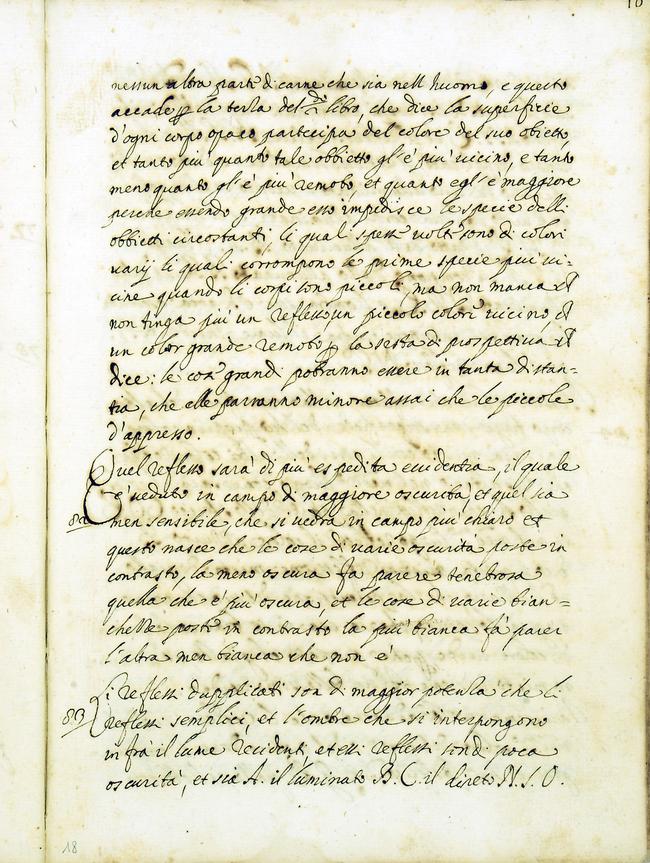 nessun altra parte di carne che sia nell huomo, e questo
accade p la terza del libro, che dice la superficie
d'ogni corpo opaco partecipa del colore del suo obietto,
et tanto più quanto tale obbietto gl'è più uicino, e tanto
meno quanto gl'è più remoto, et quanto egl'è maggiore
perche essendo grande esso impidisce le specie delli
obbietti circostanti, li quali spesse uolte sono di colori
varij li quali corrompono le prime specie piu ui=
cine quando li corpi sono piccoli, ma non manca ch
non tinga più un reflesso, un piccolo colore uicino, ch
un color grande remoto p la sesta di prospettiua ch
dice: le cose grandi potranno essere in tanta distan=
tia, che elle parranno minore assai che le piccole
d'appresso.
Quel reflesso sarà di più espedita euidentia, il quale
è ueduto in campo di maggiore oscurità, et quel sia
82
men sensibile, che si uedrà in campo più chiaro et
questo nasce che le cose di varie oscurita poste in
contrasto, la meno oscura fa parere tenebrosa
quella che è più oscura, et le cose di uarie bian=
chezze poste in contrasto la più bianca fà parer
l'altra men bianca che non è
Li reflessi dupplicati son di maggior potentia che li
83 reflessi semplici, et l'ombre che si interpongono
infra il lume incidente, et essi reflessi sono di poca
oscurità, et sia A. il luminato B. C. il direto N. S. O.
18